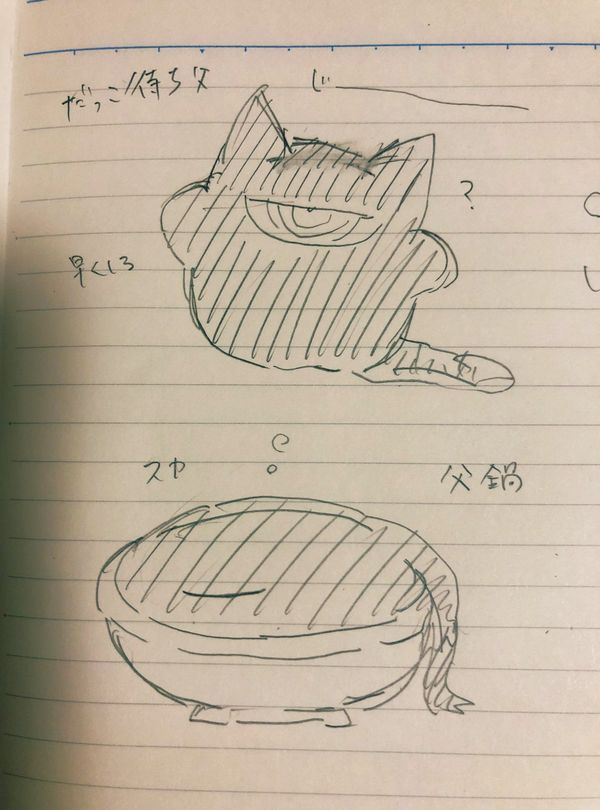 だっこ待ち父
じー
?
早くしろ
スヤ
父鍋